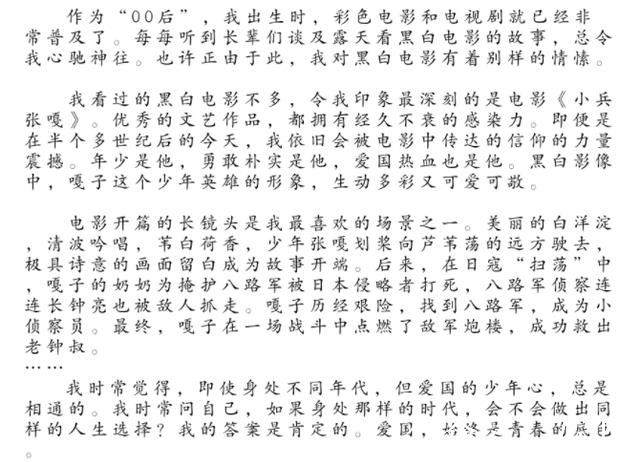 作为“00后”，我出生时，彩色电影和电视剧就已经非
常普及了。每每听到长辈们谈及露天看黑白电影的故事，总令
我心驰神往。也许正由于此，我对黑白电影有着别样的情愫。
我看过的黑白电影不多，令我印象最深刻的是电影《小兵
张嘎》。优秀的文艺作品，都拥有经久不衰的感染力。即便是
在半个多世纪后的今天，我依旧会被电影中传达的信仰的力量
震撼。年少是他，勇敢朴实是他，爱国热血也是他。黑白影像
中，嘎子这个少年英雄的形象，生动多彩又可爱可敬。
电影开篇的长镜头是我最喜欢的场景之一。美丽的白洋淀
，清波吟唱，苇白荷香，少年张嘎划桨向芦苇荡的远方驶去，
极具诗意的画面留白成为故事开端。后来，在日寇“扫荡”中
，嘎子的奶奶为掩护八路军被日本侵略者打死，八路军侦察连
连长钟亮也被敌人抓走。嘎子历经艰险，找到八路军，成为小
侦察员。最终，嘎子在一场战斗中点燃了敌军炮楼，成功救出
老钟叔。
……
我时常觉得，即使身处不同年代，但爱国的少年心，总是
相通的。我时常问自己，如果身处那样的时代，会不会做出同
样的人生选择？我的答案是肯定的。爱国，始终是青春的底色
。